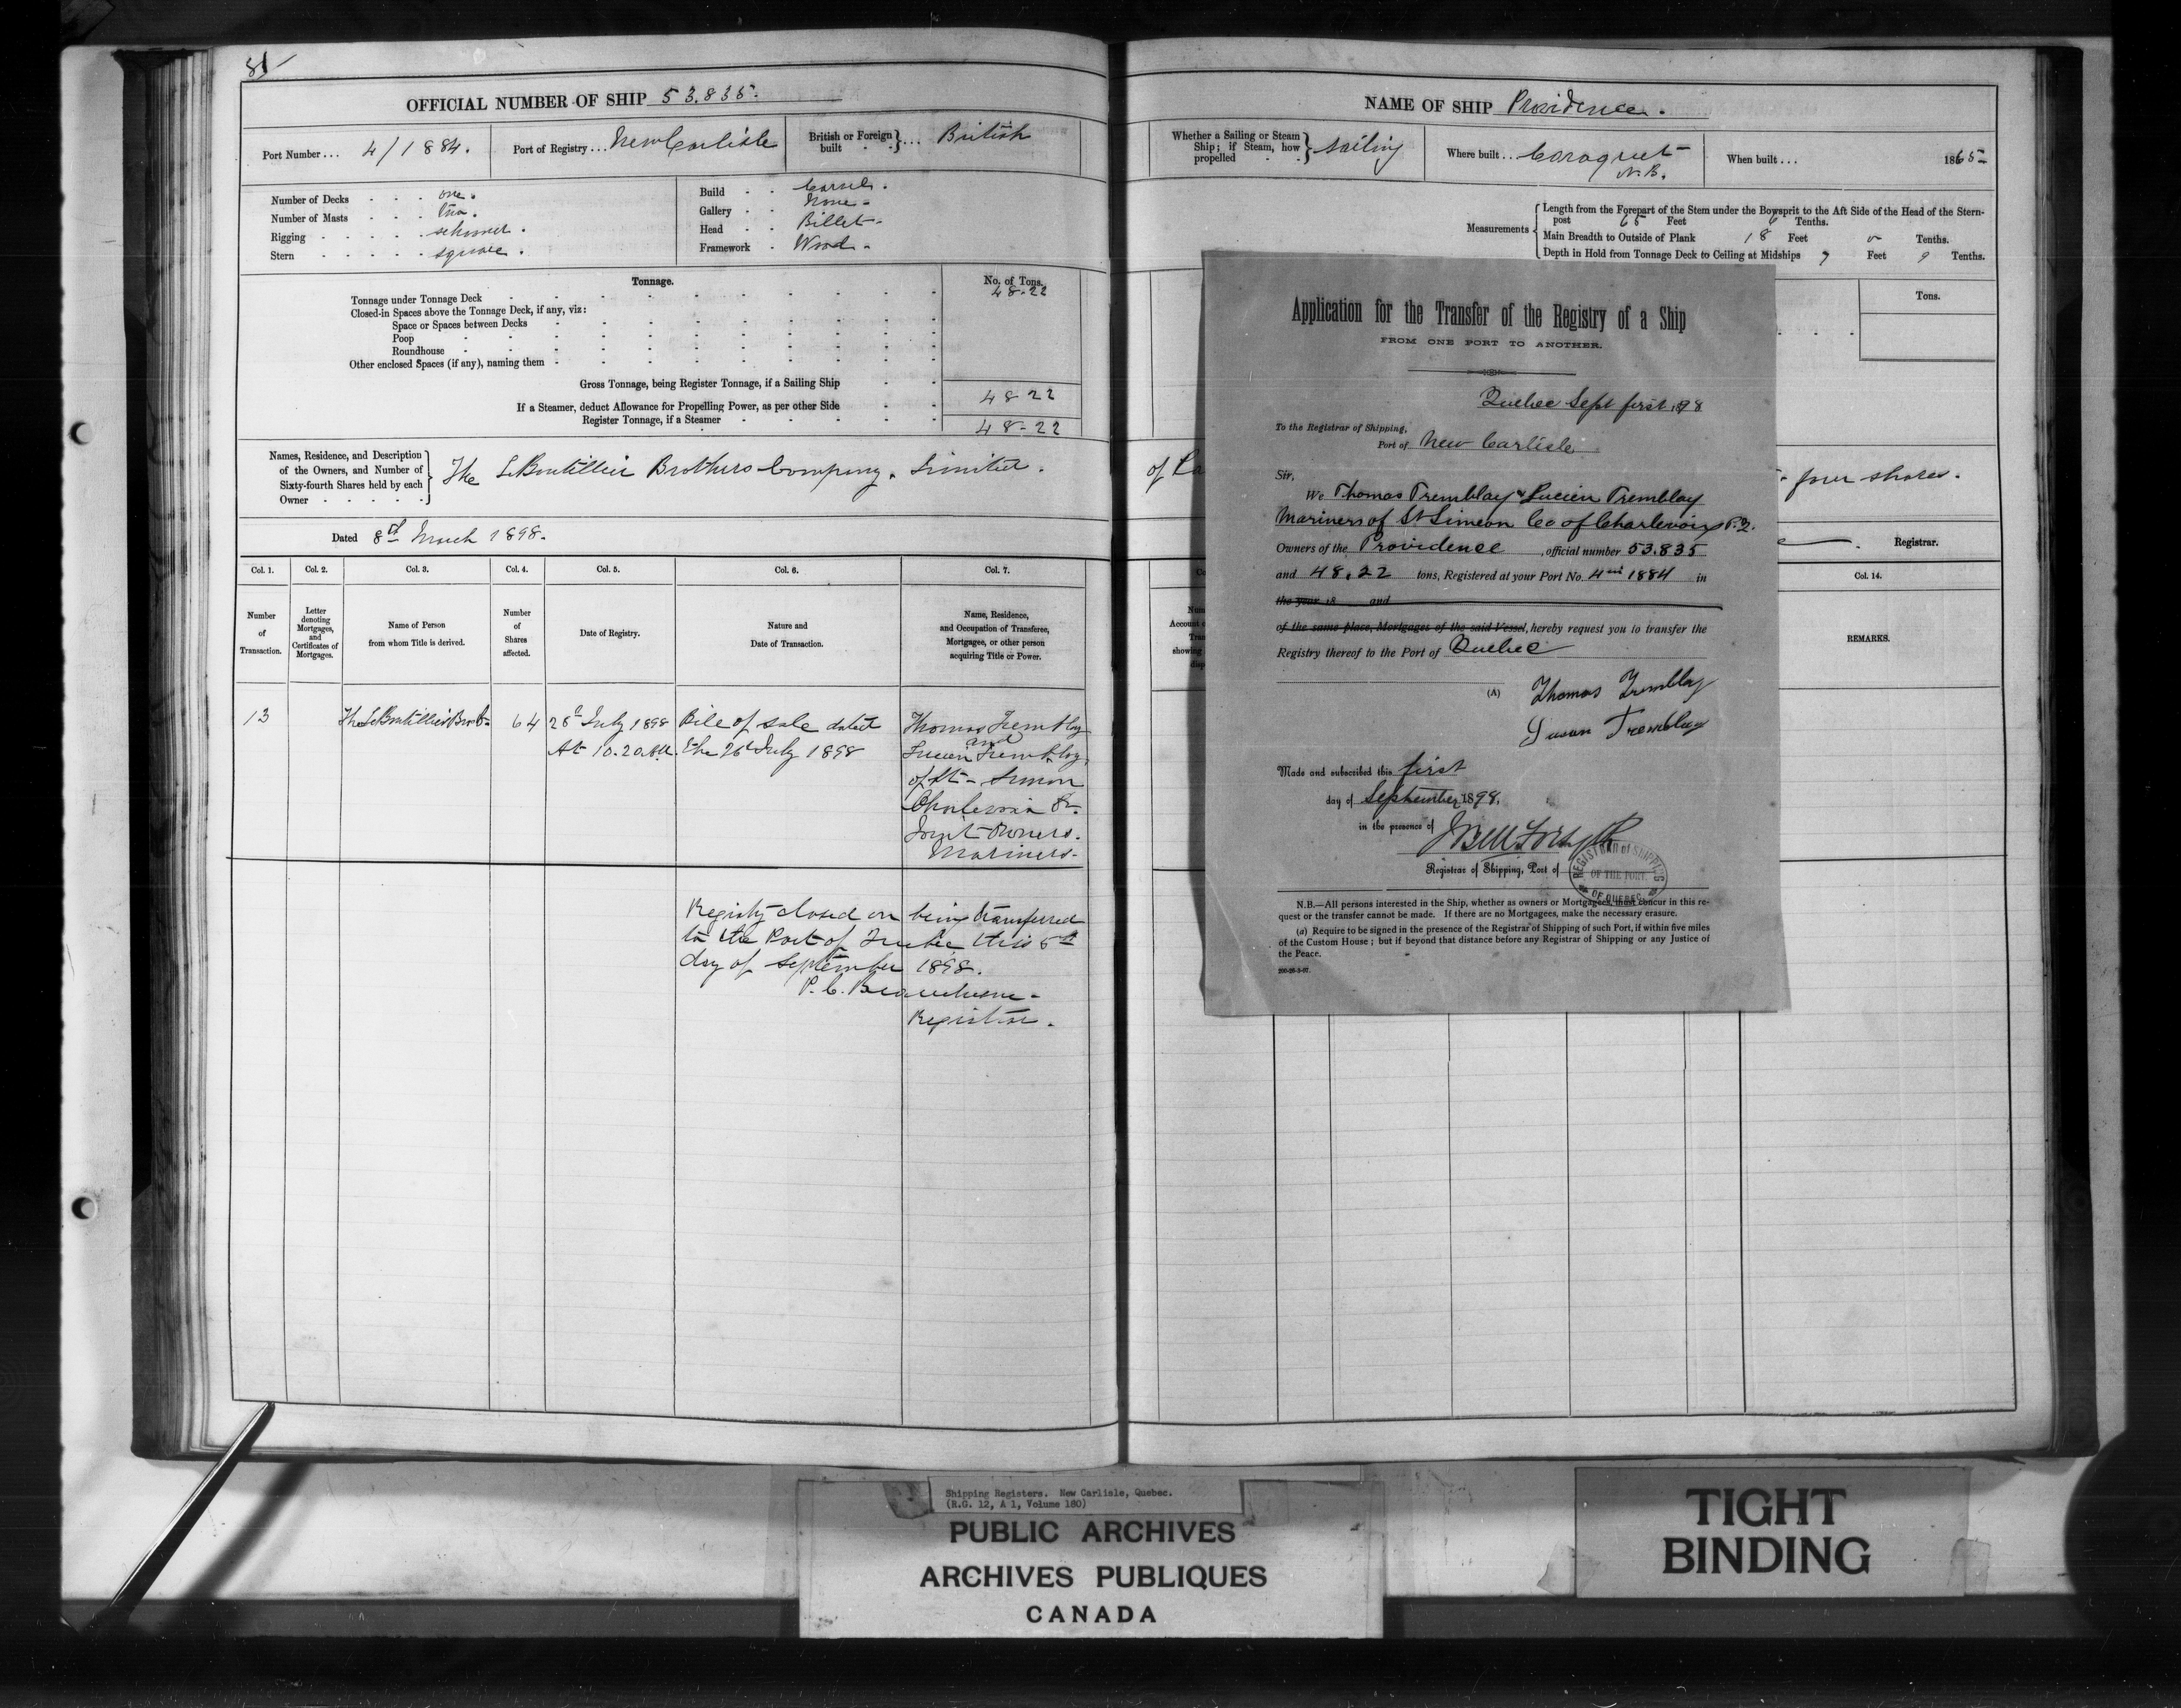 81
OFFICIAL NUMBER OF SHIP 53.835.
Port Number... 4/1884.
Port of Registry... New Carlisle
British or Foreign built } ... British
Number of Decks - - - one.
Number of Masts - - - two.
Rigging - - - schooner.
Stern - - - square.
Build - - Carvel.
Gallery - - None -
Head - - Billet -
Framework - Wood -
Tonnage.
No. of Tons.
Tonnage under Tonnage Deck 48-22
Closed-in Spaces above the Tonnage Deck, if any, viz:
Space or Spaces between Decks
Poop
Roundhouse
Other enclosed Spaces (if any), naming them
Gross Tonnage, being Register Tonnage, if a Sailing Ship 48-22
If a Steamer, deduct Allowance for Propelling Power, as per other Side
Register Tonnage, if a Steamer 48-22
Names, Residence, and Description
of the Owners, and Number of
Sixty-fourth Shares held by each
Owner
The LeBoutillier Brothers Company. Limited.
Dated 8th March 1898.
Col. 1.
Col. 2.
Col. 3.
Col. 4.
Col. 5.
Col. 6.
Col. 7.
Number of Transaction.
Letter denoting Mortgages, and Certificates of Mortgages.
Name of Person from whom Title is derived.
Number of Shares affected.
Date of Registry.
Nature and Date of Transaction.
Name, Residence, and Occupation of Transferee, Mortgagee, or other person acquiring Title or Power.
13
The LeBoutillier Bros
64
28th July 1898
At 10.20 AM.
Bill of sale dated
the 26th July 1898
Thomas Tremblay
and
Lucien Tremblay
of St- Simon
Charlevoix
Joint Owners.
Mariners-
Registry closed on being transferred
to the Port of Quebec this 5th
day of September 1898.
P. C. Beauchesne -
Registrar.
NAME OF SHIP Providence.
Whether a Sailing or Steam Ship; if Steam, how propelled } Sailing
Where built... Caraquet
N.B.
When built... 1865-
Measurements
Length from the Forepart of the Stem under the Bowsprit to the Aft Side of the Head of the Stern-
post 65 Feet 6 Tenths.
Main Breadth to Outside of Plank 18 Feet 0 Tenths.
Depth in Hold from Tonnage Deck to Ceiling at Midships 7 Feet 9 Tenths.
Tons.
of
four shares.
Registrar.
Col. 14.
REMARKS.
Application for the Transfer of the Registry of a Ship
FROM ONE PORT TO ANOTHER.
Quebec Sept first 1898
To the Registrar of Shipping,
Port of New Carlisle
Sir,
We Thomas Tremblay & Lucien Tremblay
Mariners of St Simeon Co of Charlevoix P.Q.
Owners of the Providence, official number 53.835
and 48.22 tons, Registered at your Port No. 4 in 1884 in
the year 18 and
of the same place, Mortgages of the said Vessel, hereby request you to transfer the
Registry thereof to the Port of Quebec
(A) Thomas Tremblay
Tremblay
Made and subscribed this first
day of September 1898.
in the presence of
J Bell Forsyth
Registrar of Shipping, Port of
REGISTRAR of SHIPPING
OF THE PORT
OF QUEBEC
N.B.—All persons interested in the Ship, whether as owners or Mortgages, must concur in this re-
quest or the transfer cannot be made. If there are no Mortgagees, make the necessary erasure.
(a) Require to be signed in the presence of the Registrar of Shipping of such Port, if within five miles
of the Custom House; but if beyond that distance before any Registrar of Shipping or any Justice of
the Peace.
200-26-3-97.
Shipping Registers. New Carlisle, Quebec.
(R.G. 12, A 1, Volume 180)
PUBLIC ARCHIVES
ARCHIVES PUBLIQUES
CANADA
TIGHT
BINDING